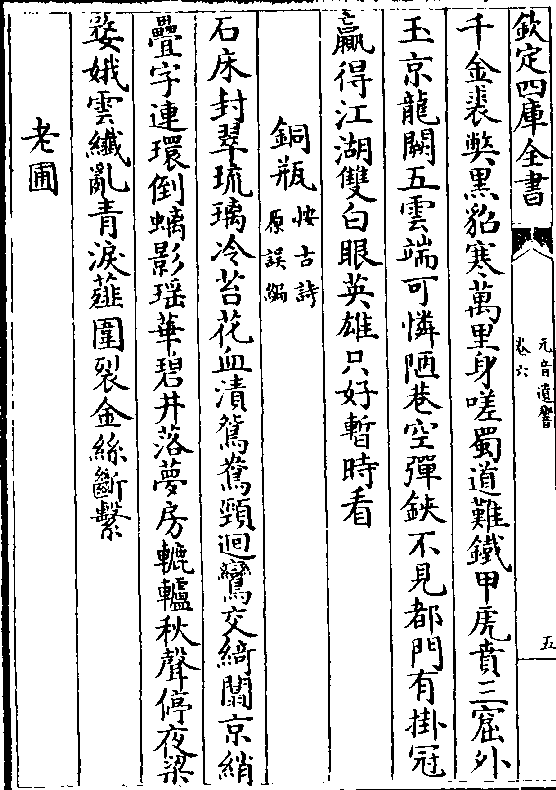 欽定四庫全書
元音遺響
卷六
五
千金裘弊黑貂寒萬里身嗟蜀道難鐵甲虎賁三窟外
玉京龍闕五雲端可憐陋巷空彈鋏不見都門有掛冠
贏得江湖雙白眼英雄只好暫時看
銅瓶按古詩原誤編
石床封翠琉璃冷苔花血漬鴛鴦頸迴鸞交綺闊京綃
疊字連環倒螭影瑶華碧井落夢房轆轤秋聲停夜梁
婺娥雲纖亂青淚薤圍裂金絲斷繫
老圃